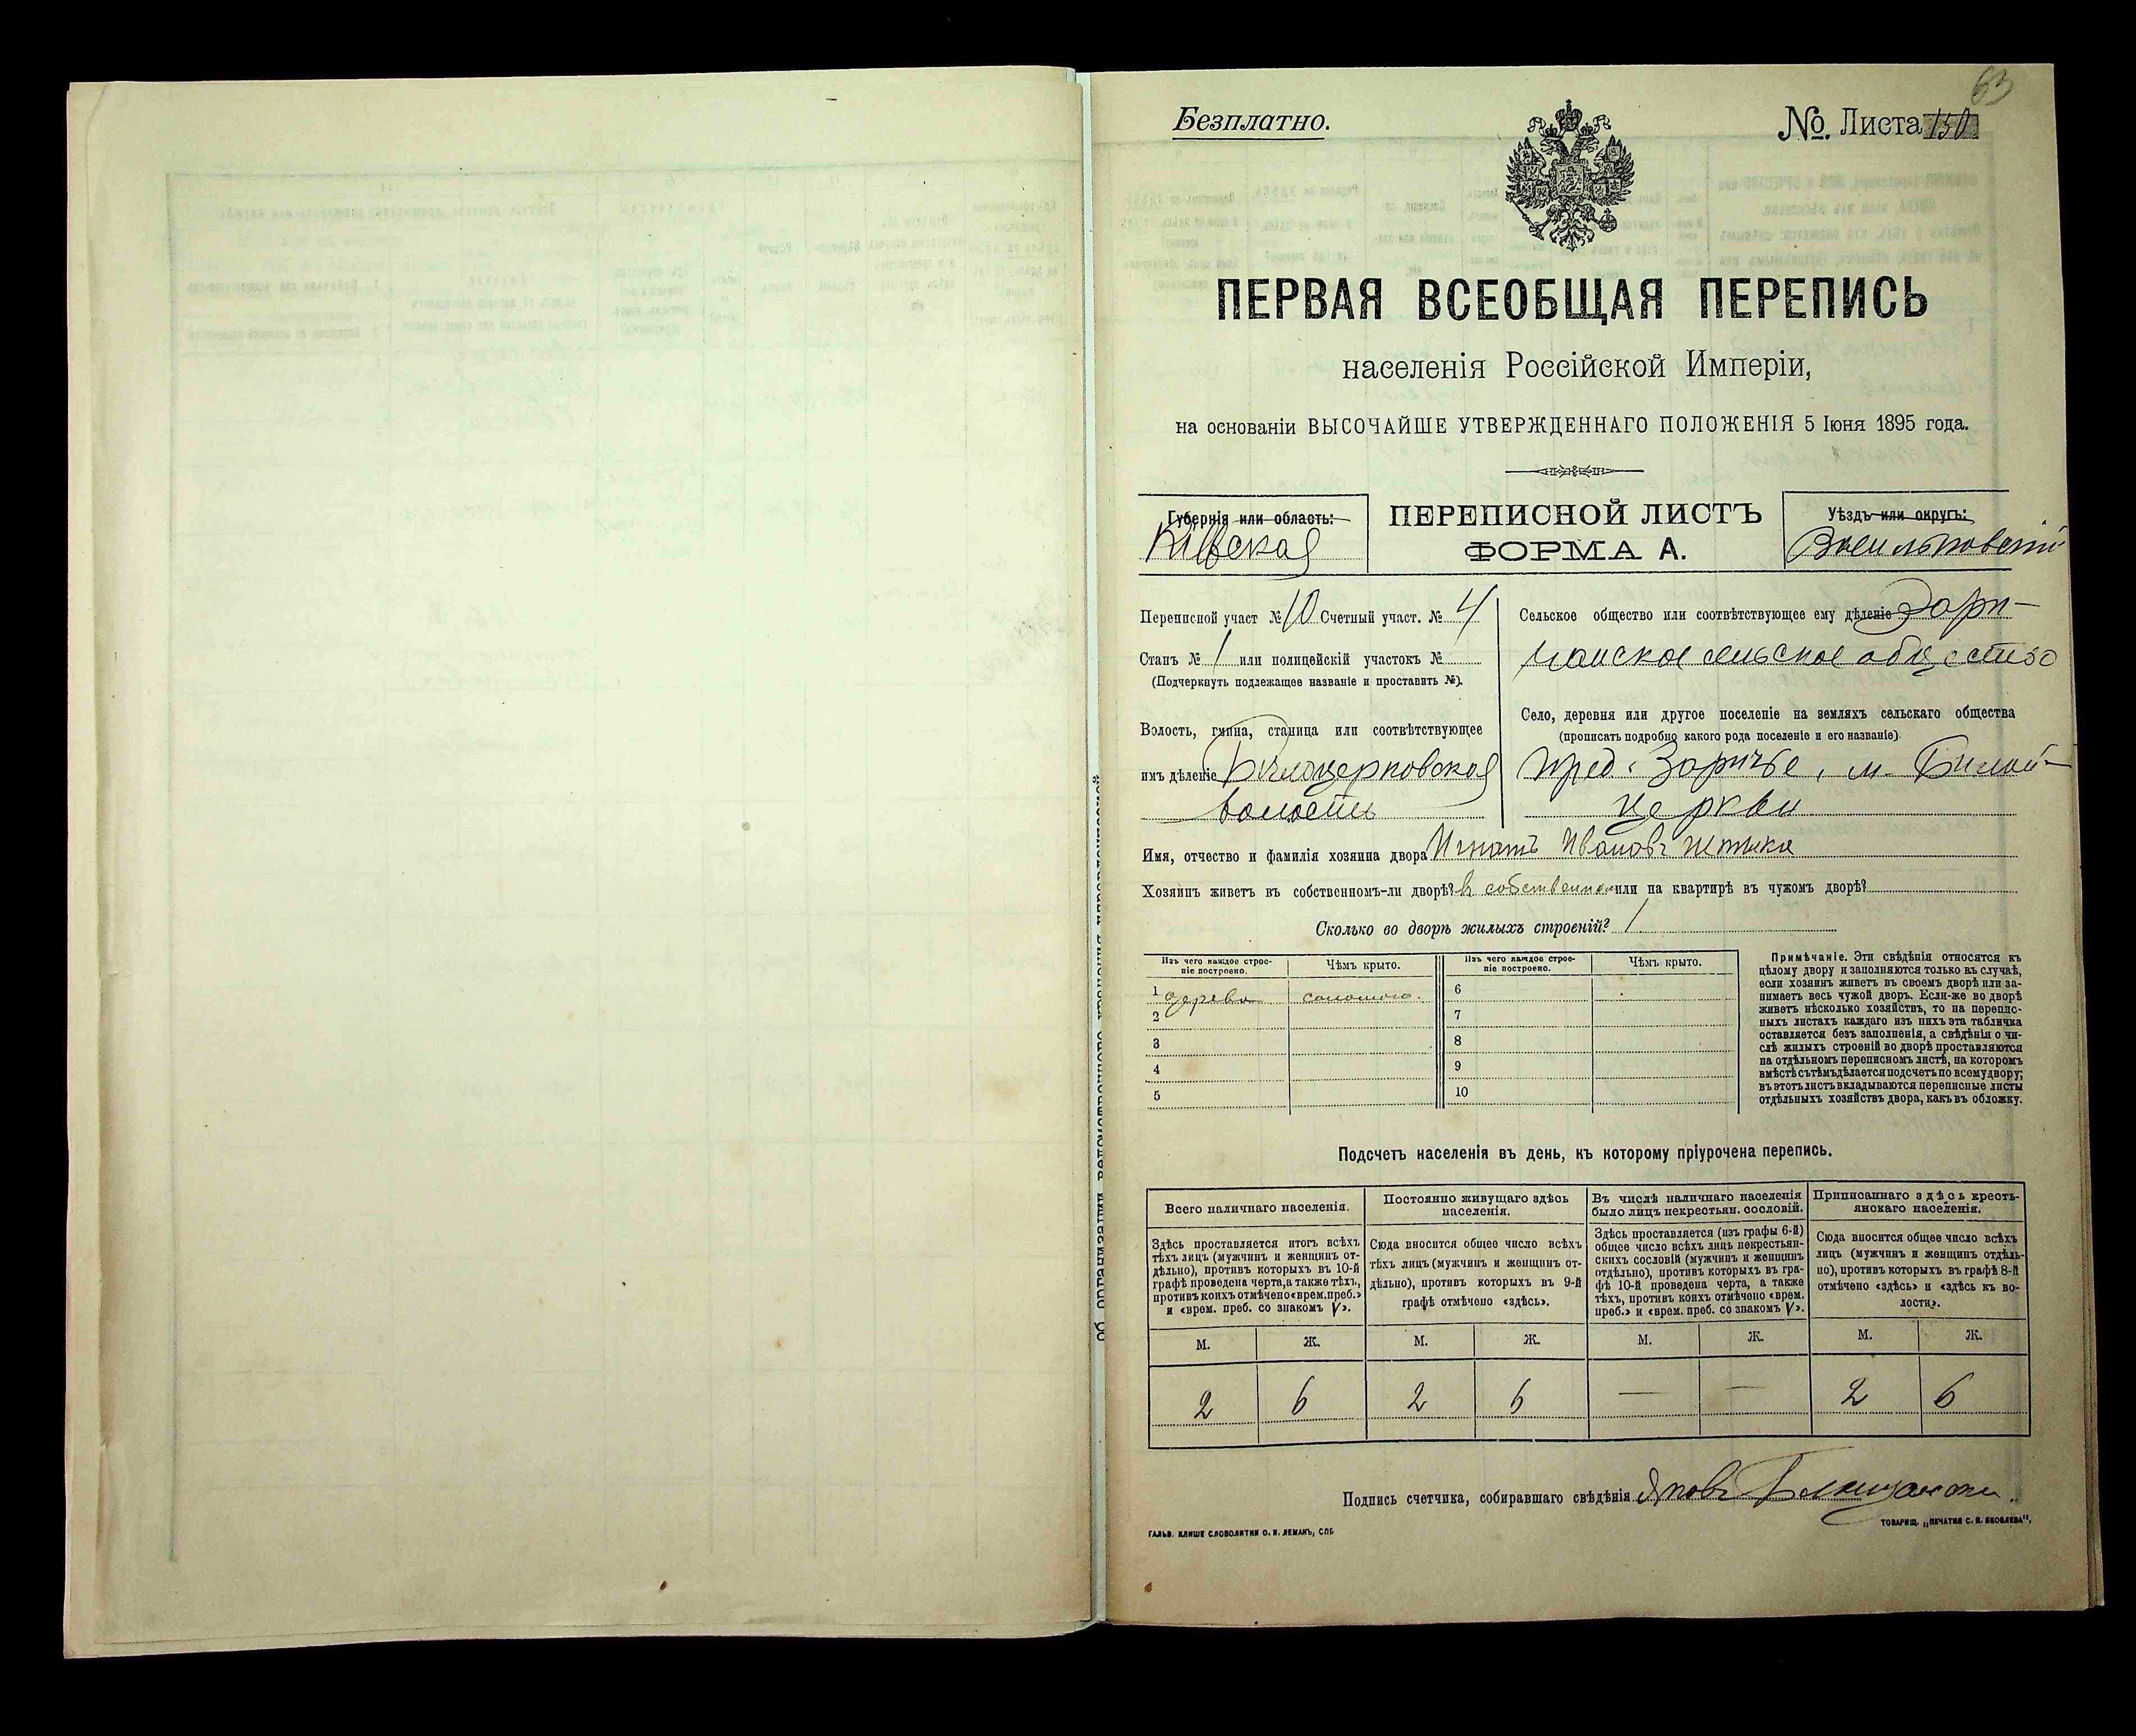 63
Безплатно.
№. Листа 150
ПЕРВАЯ ВСЕОБЩАЯ ПЕРЕПИСЬ
населенія Россійской Имперіи,
на основаніи ВЫСОЧАЙШЕ УТВЕРЖДЕННАГО ПОЛОЖЕНІЯ 5 Іюня 1895 года.
Губернія или область:
Кіевская
ПЕРЕПИСНОЙ ЛИСТЪ
ФОРМА А.
Уѣздъ или округъ:
Васильковскій
Переписной участ № 10 Счетный участ. № 4
Станъ № 1 или полицейскій участокъ №
(Подчеркнуть подлежащее названіе и проставить №).
Волость, гмина, станица или соотвѣтствующее
имъ дѣленіе Бѣлоцерковская
волость
Сельское общество или соотвѣтствующее ему дѣленіе Зари-
чанское сельское общество
Село, деревня или другое поселеніе на земляхъ сельскаго общества
(прописать подробно какого рода поселеніе и его названіе).
пред. Заричье, м. Билой-
церкви
Имя, отчество и фамилія хозяина двора Игнатъ Ивановъ
Хозяинъ живетъ въ собственномъ-ли дворѣ? въ собственном или на квартирѣ въ чужомъ дворѣ?
Сколько во дворѣ жилыхъ строеній? 1
Изъ чего каждое строе-
ніе построено.
Чѣмъ крыто.
Изъ чего каждое строе-
ніе построено.
Чѣмъ крыто.
1 дерева соломою.
2
3
4
5
6
7
8
9
10
Примѣчаніе. Эти свѣдѣнія относятся къ
цѣлому двору и заполняются только въ случаѣ,
если хозяинъ живетъ въ своемъ дворѣ или за-
нимаетъ весь чужой дворъ. Если-же во дворѣ
живетъ нѣсколько хозяйствъ, то на перепис-
ныхъ листахъ каждаго изъ нихъ эта табличка
оставляется безъ заполненія, а свѣдѣнія о чи-
слѣ жилыхъ строеній во дворѣ проставляются
на отдѣльномъ переписномъ листѣ, на которомъ
вмѣстѣ съ тѣмъ дѣлается подсчетъ по всему двору;
въ этотъ листъ вкладываются переписные листы
отдѣльныхъ хозяйствъ двора, какъ въ обложку.
Подсчетъ населенія въ день, къ которому пріурочена перепись.
Всего наличнаго населенія.
Здѣсь проставляется итогъ всѣхъ
тѣхъ лицъ (мужчинъ и женщинъ от-
дѣльно), противъ которыхъ въ 10-й
графѣ проведена черта, а также тѣхъ,
противъ коихъ отмѣчено «врем. преб.»
и «врем. преб. со знакомъ V».
Постоянно живущаго здѣсь
населенія.
Сюда вносится общее число всѣхъ
тѣхъ лицъ (мужчинъ и женщинъ от-
дѣльно), противъ которыхъ въ 9-й
графѣ отмѣчено «здѣсь».
Въ числѣ наличнаго населенія
было лицъ некрестьян. сословій.
Здѣсь проставляется (изъ графы 6-й)
общее число всѣхъ лицъ некрестьян-
скихъ сословій (мужчинъ и женщинъ
отдѣльно), противъ которыхъ въ гра-
фѣ 10-й проведена черта, а также
тѣхъ, противъ коихъ отмѣчено «врем.
преб.» и «врем. преб. со знакомъ V».
Приписаннаго здѣсь кресть-
янскаго населенія.
Сюда вносится общее число всѣхъ
лицъ (мужчинъ и женщинъ отдѣль-
но), противъ которыхъ въ графѣ 8-й
отмѣчено «здѣсь» и «здѣсь къ во-
лости».
М. Ж. М. Ж. М. Ж. М. Ж.
2 6 2 6 — — 2 6
Подпись счетчика, собиравшаго свѣдѣнія Яковъ
ГАЛЬВ. КЛИШЕ СЛОВОЛИТНИ О. И. ЛЕМАНЪ, СПБ
ТОВАРИЩ. „ПЕЧАТНЯ С. П. ЯКОВЛЕВА".